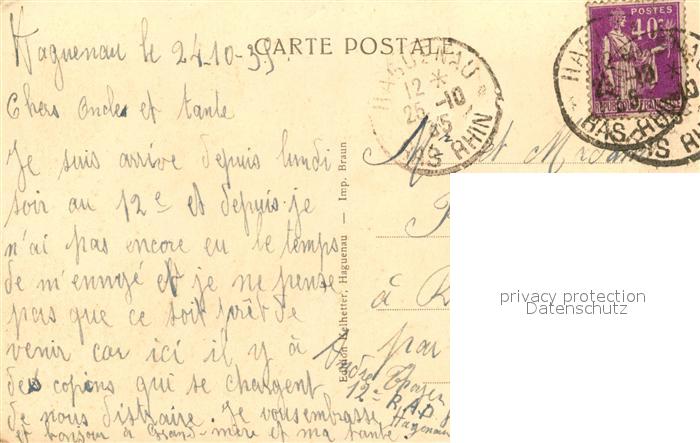 Haguenau le 24-10-35
CARTE POSTALE
Chers Oncles et tante
Je suis arrivé depuis lundi
soir au 12e et depuis je
n'ai pas encore eu le temps
de m'ennuyé et je ne pense
pas que ce soit prêt de
venir car ici il y à
des copins qui se chargent
de nous distraire. Je vous embrasse
et bonjour à Grand-mère et ma tante
Edition Kelhetter, Haguenau — Imp. Braun
HAGUENAU
12 *
25 -10
35
BAS RHIN
POSTES
40c
HAGUENAU
25 10
35
BAS RHIN
Mr et Madame
à
par
12e R.A.D.
Haguenau
privacy protection
Datenschutz